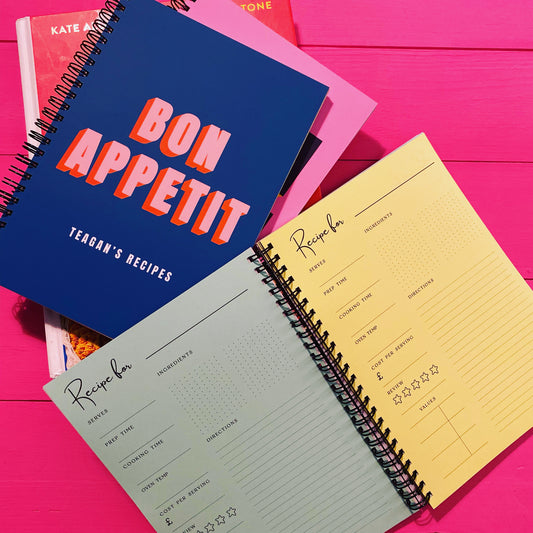 KATE A
TONE
BON
APPETIT
TEAGAN'S RECIPES
Recipe for
INGREDIENTS
SERVES
PREP TIME
COOKING TIME
DIRECTIONS
OVEN TEMP
COST PER SERVING
£
REVIEW
VALUES
Recipe for
INGREDIENTS
SERVES
PREP TIME
COOKING TIME
DIRECTIONS
OVEN TEMP
COST PER SERVING
£
REVIEW